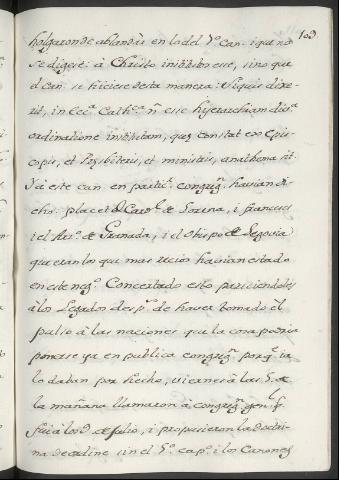 103
holgaron de ablandàr en lo del 7º can. i que no
se digese: à Christo institutam esse, sino que
el can. se hiciese desta manera: Siquis dixe-
rit, in Ecc.ª Cath.ca nˉ esse hyerarchiam div.ª
ordinatione institutam, quę constat ex Epis-
copis, et Presbiteris, et ministris, anathema sit.
Yà este can. en partic.r congrg.n havian di-
cho: placet el Car.l de Lorena, i franceses
i el Arz.º de Granada, i el Obispo de Segovia
que eran los que mas recios havian estado
en este neg.º Concertado esto pareciendoles
à los Legados desp.s de haver tomado el
pulso à las naciones que la cosa podria
ponerse ya en publica congrg.n porq.e ia
lo daban por hecho, viernes à las 7. de
la mañana llamaron à congrg.n gen.l q.
fuè à los 9. de Julio, i propusieron la doctri-
na de ordine sin el 5º cap.º i los Canones